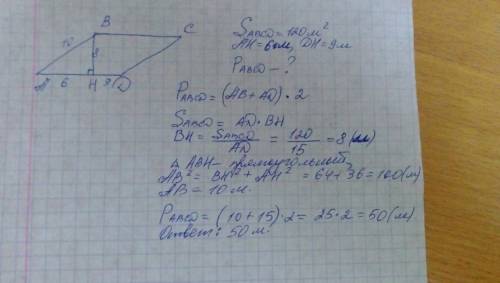 B
C
10
8
6
H
9
D
S ABCD = 120 м²
AH = 6 м, DH = 9 м
P ABCD - ?
P ABCD = (AB + AD) · 2
S ABCD = AD · BH
BH = S ABCD / AD = 120 / 15 = 8 (м)
Δ ABH - прямоугольный,
AB² = BH² + AH² = 64 + 36 = 100 (м)
AB = 10 м.
P ABCD = (10 + 15) · 2 = 25 · 2 = 50 (м)
Ответ: 50 м.